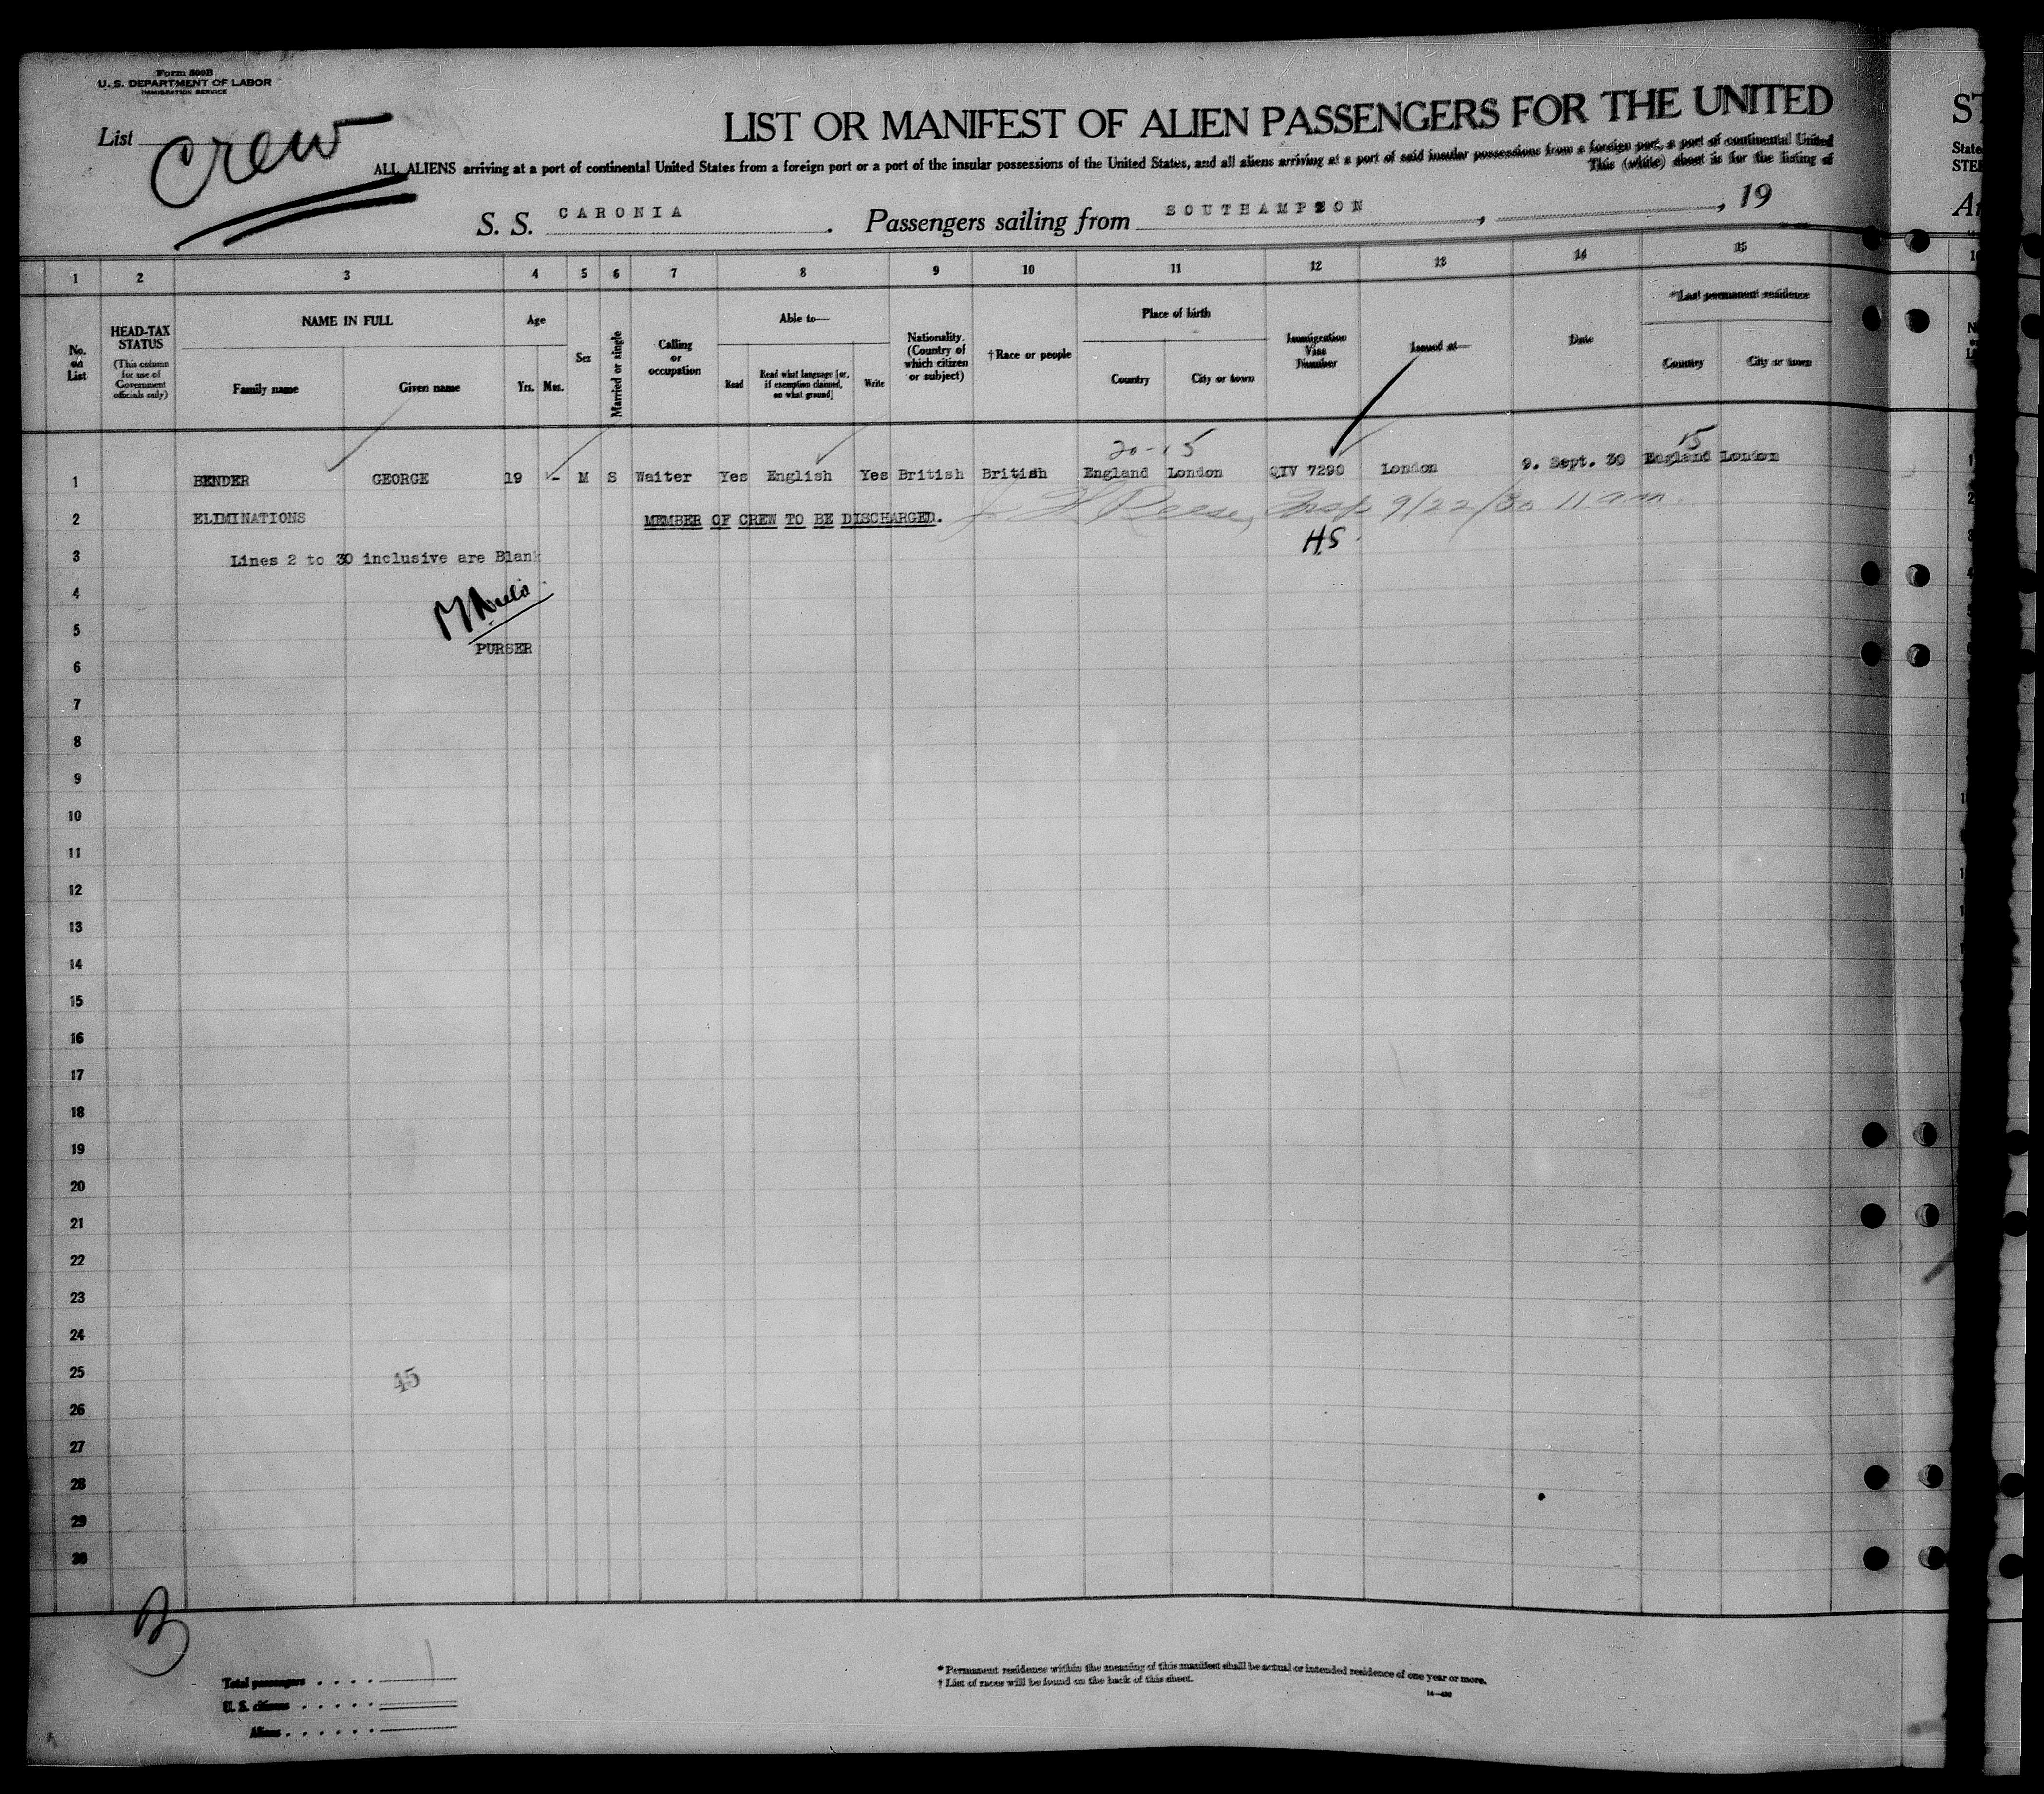 Form 500B
U. S. DEPARTMENT OF LABOR
IMMIGRATION SERVICE
List Crew
LIST OR MANIFEST OF ALIEN PASSENGERS FOR THE UNITED
ALL ALIENS arriving at a port of continental United States from a foreign port or a port of the insular possessions of the United States, and all aliens arriving at a port of said insular possessions from a foreign port, a port of continental United
This (white) sheet is for the listing of
S. S. CARONIA. Passengers sailing from SOUTHAMPTON, , 19
1 2 3 4 5 6 7 8 9 10 11 12 13 14 15
No. on List
HEAD-TAX STATUS
(This column for use of Government officials only)
NAME IN FULL
Family name Given name
Age
Yrs. Mos.
Sex
Married or single
Calling or occupation
Able to—
Read
Read what language [or, if exemption claimed, on what ground]
Write
Nationality. (Country of which citizen or subject)
†Race or people
Place of birth
Country City or town
Immigration Visa Number
Issued at—
Date
*Last permanent residence
Country City or town
20-15 15
1 BENDER GEORGE 19 - M S Waiter Yes English Yes British British England London QIV 7290 London 9. Sept. 30 England London
2 ELIMINATIONS MEMBER OF CREW TO BE DISCHARGED. Reese, Insp 9/22/30 11 am.
H.S.
3 Lines 2 to 30 inclusive are Blank
4
5
PURSER
6
7
8
9
10
11
12
13
14
15
16
17
18
19
20
21
22
23
24
25 45
26
27
28
29
30
B
Total passengers
U. S. citizens
Aliens
* Permanent residence within the meaning of this manifest shall be actual or intended residence of one year or more.
† List of races will be found on the back of this sheet.